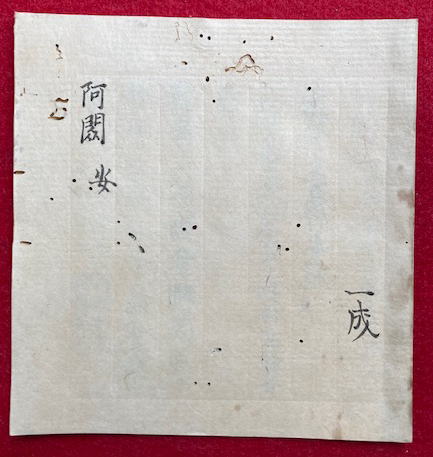 一成
阿閦 安